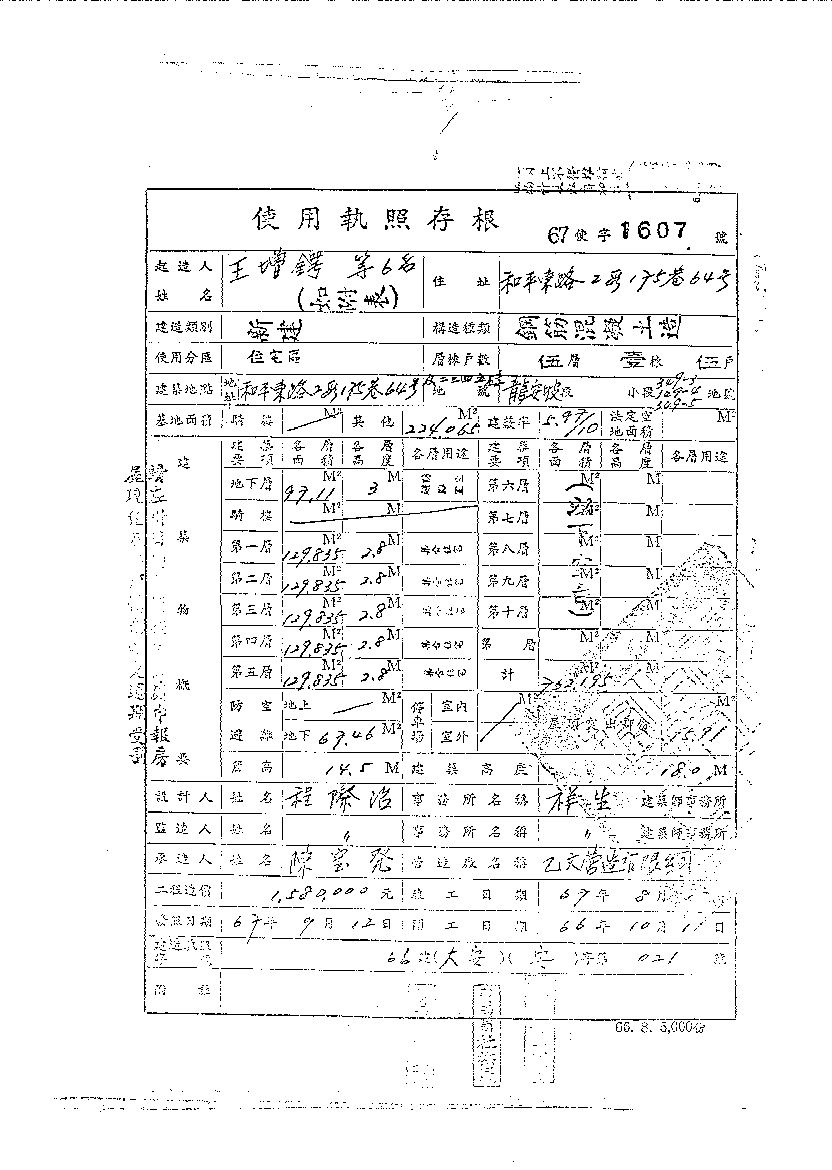 使用執照存根
67使字1607號
起造人姓名 王增鍔 等6名 (如附表) 住址 和平東路2段175巷64号
建造類別 新建 構造種類 鋼筋混凝土造
使用分區 住宅區 層棟戶數 伍層 壹棟 伍戶
建築地點 地址 和平東路2段175巷64号及二三四五樓 地號 龍安坡段 小段 349-3 349-4 349-5 地號
基地面積 騎樓 M² 其他 224.065 M² 建蔽率 5.97/10 法定空地面積 M²
建築物概要 建築要項 各層面積 各層高度 各層用途 建築要項 各層面積 各層高度 各層用途
地下層 97.11 M² 3 M 第六層 M² M
騎樓 M² M 第七層 M² M
第一層 129.835 M² 2.8 M 第八層 M² M
第二層 129.835 M² 2.8 M 第九層 M² M
第三層 129.835 M² 2.8 M 第十層 M² M
第四層 129.835 M² 2.8 M 第 層 M² M
第五層 129.835 M² 2.8 M 計 M² M
防空避難 地上 M² 停車場 室內 M² M²
地下 67.46 M² 室外 15.91
簷高 14.5 M 建築高度 18.0 M
設計人 姓名 程際治 事務所名稱 祥生 建築師事務所
監造人 姓名 〃 事務所名稱 〃 建築師事務所
承造人 姓名 陳宝発 營造廠名稱 乙文營造有限公司
工程造價 1,580,000元 竣工日期 67年8月
發照日期 67年9月12日 開工日期 66年10月11日
建造執照字號 66建(大安)(安)字第021號
附註
66. 8. 5,000份